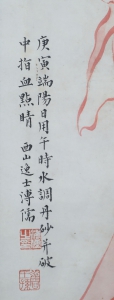 庚寅端陽日用午時水調丹砂并破
中指血點睛　西山逸士溥儒